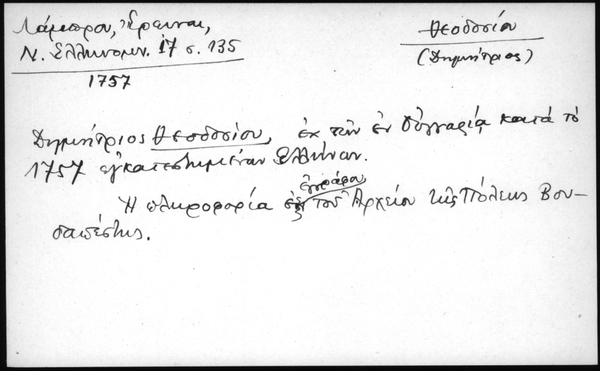 Λάμπρου, Ἔρευναι,
Ν. Ἑλληνομν. 17 σ. 135
1757
Θεοδοσίου
(Δημήτριος)
Δημήτριος Θεοδοσίου, ἐκ τῶν ἐν Οὑγγαρίᾳ κατὰ τὸ
1757 ἐγκατεστημένων Ἑλλήνων.
Ἡ πληροφορία ἐξ ἐγγράφου τοῦ Ἀρχείου τῆς Πόλεως Βου-
δαπέστης.